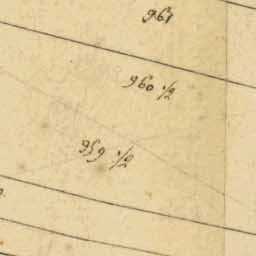 961
960 ./2
959 ./2